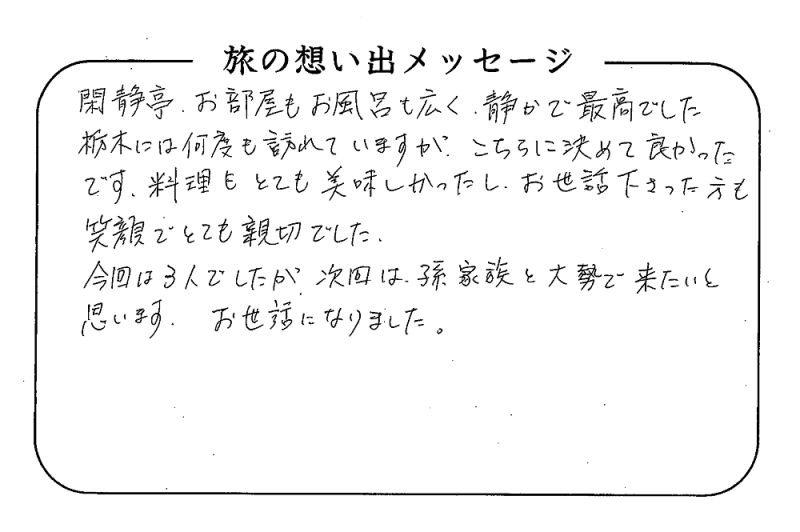 旅の想い出メッセージ
閑静亭、お部屋もお風呂も広く、静かで最高でした
栃木には何度も訪れていますが、こちらに決めて良かった
です、料理もとても美味しかったし、お世話下さった方も
笑顔でとても親切でした、
今回は3人でしたが、次回は、孫家族と大勢で来たいと
思います、お世話になりました。